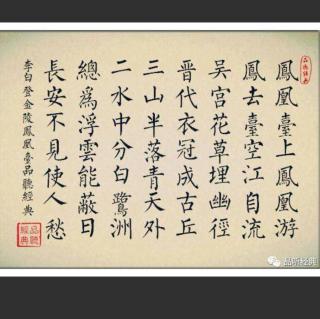 鳳凰臺上鳳凰游
鳳去臺空江自流
吴宫花草埋幽徑
晋代衣冠成古丘
三山半落青天外
二水中分白鷺洲
總為浮雲能蔽日
長安不見使人愁
李白登金陵鳳凰臺品聽經典
品聽
經典
品听经典